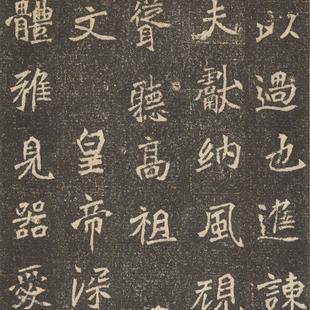 以過也進諫
夫獻納風規
聳聽高祖
文皇帝深
體雅見器愛